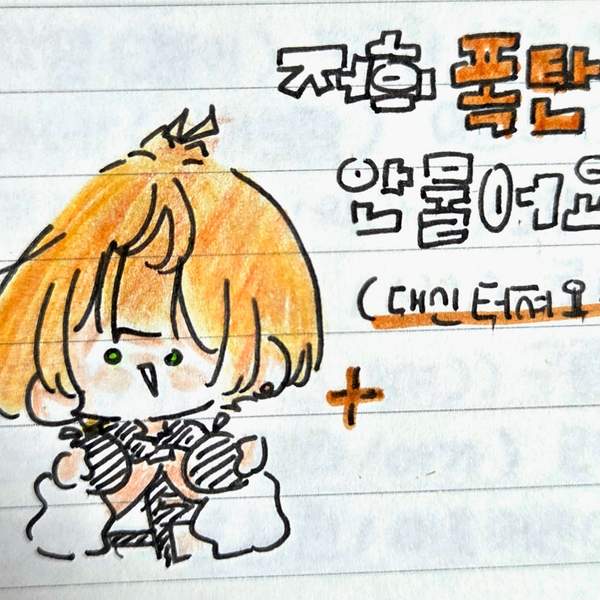 저흰 폭탄
안물어요
(대신 터져요
+